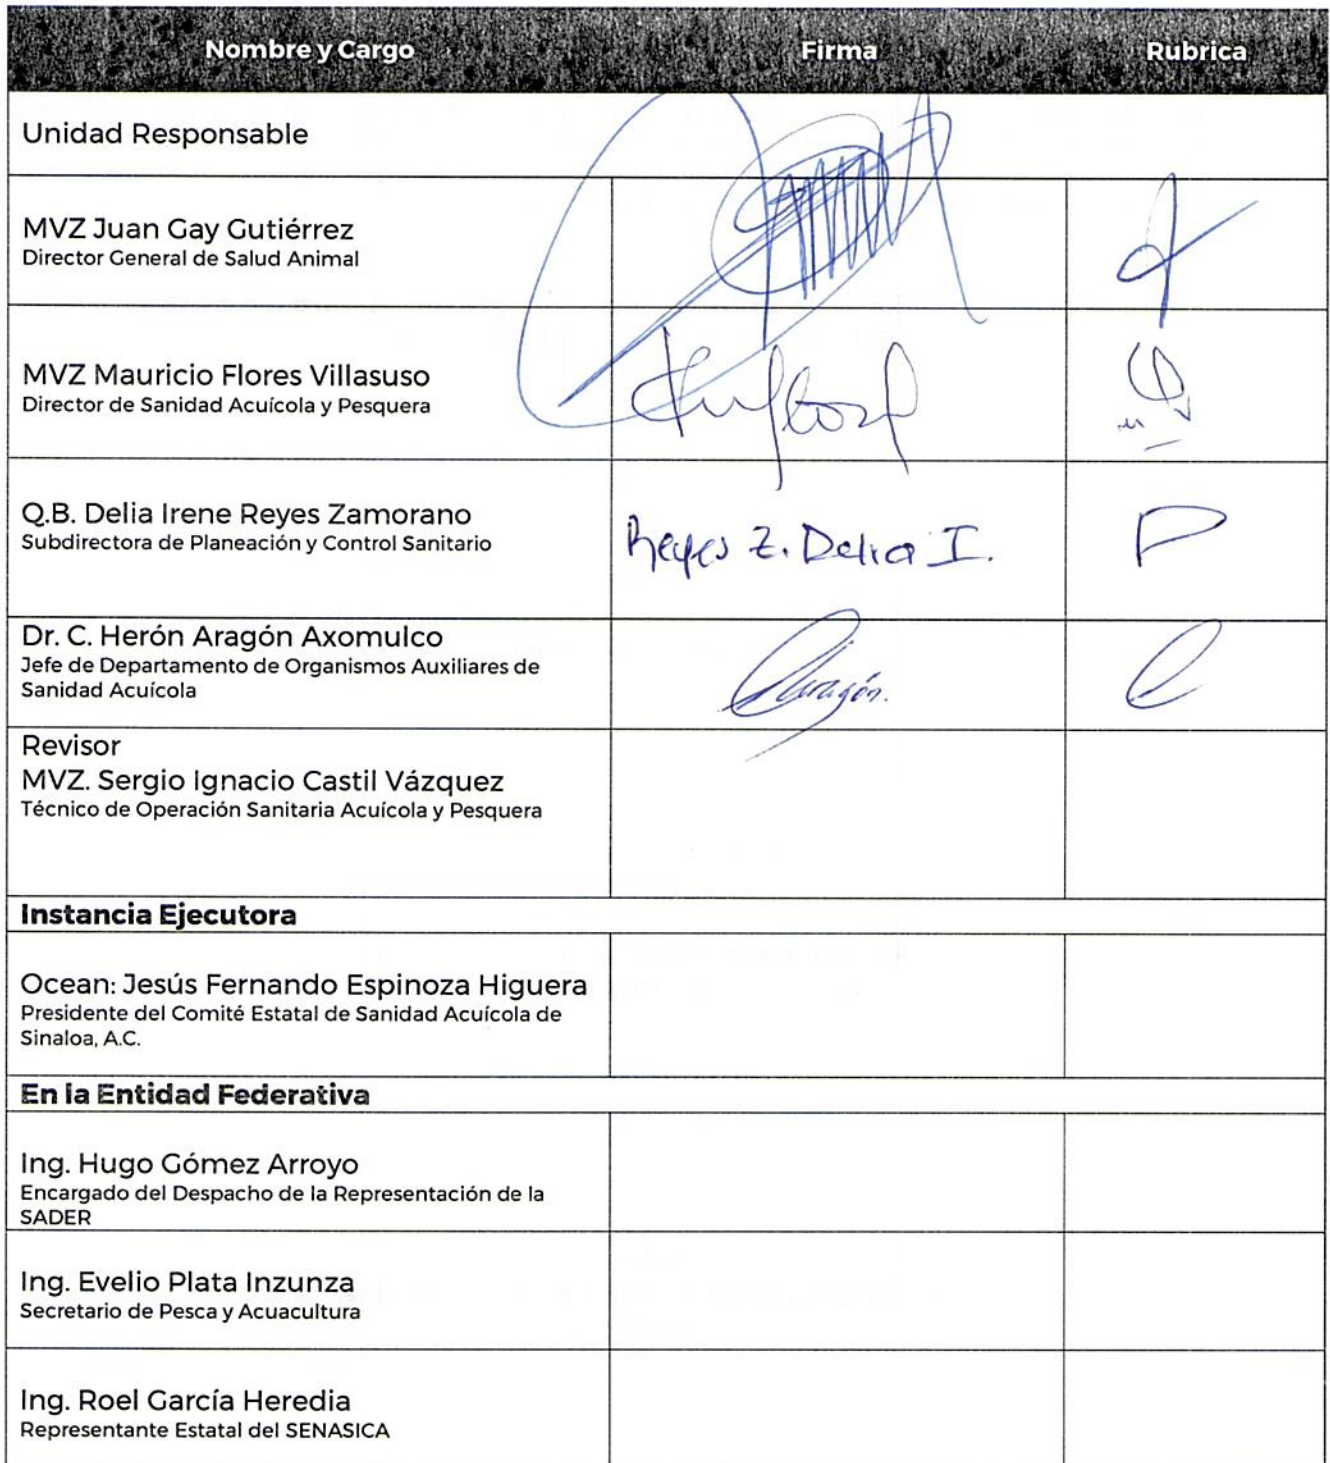 Nombre y Cargo Firma Rubrica
Unidad Responsable
MVZ Juan Gay Gutiérrez
Director General de Salud Animal
MVZ Mauricio Flores Villasuso
Director de Sanidad Acuícola y Pesquera
Q.B. Delia Irene Reyes Zamorano
Subdirectora de Planeación y Control Sanitario
Reyes Z. Delia I.
Dr. C. Herón Aragón Axomulco
Jefe de Departamento de Organismos Auxiliares de
Sanidad Acuícola
Aragón.
Revisor
MVZ. Sergio Ignacio Castil Vázquez
Técnico de Operación Sanitaria Acuícola y Pesquera
Instancia Ejecutora
Ocean: Jesús Fernando Espinoza Higuera
Presidente del Comité Estatal de Sanidad Acuícola de
Sinaloa, A.C.
En la Entidad Federativa
Ing. Hugo Gómez Arroyo
Encargado del Despacho de la Representación de la
SADER
Ing. Evelio Plata Inzunza
Secretario de Pesca y Acuacultura
Ing. Roel García Heredia
Representante Estatal del SENASICA